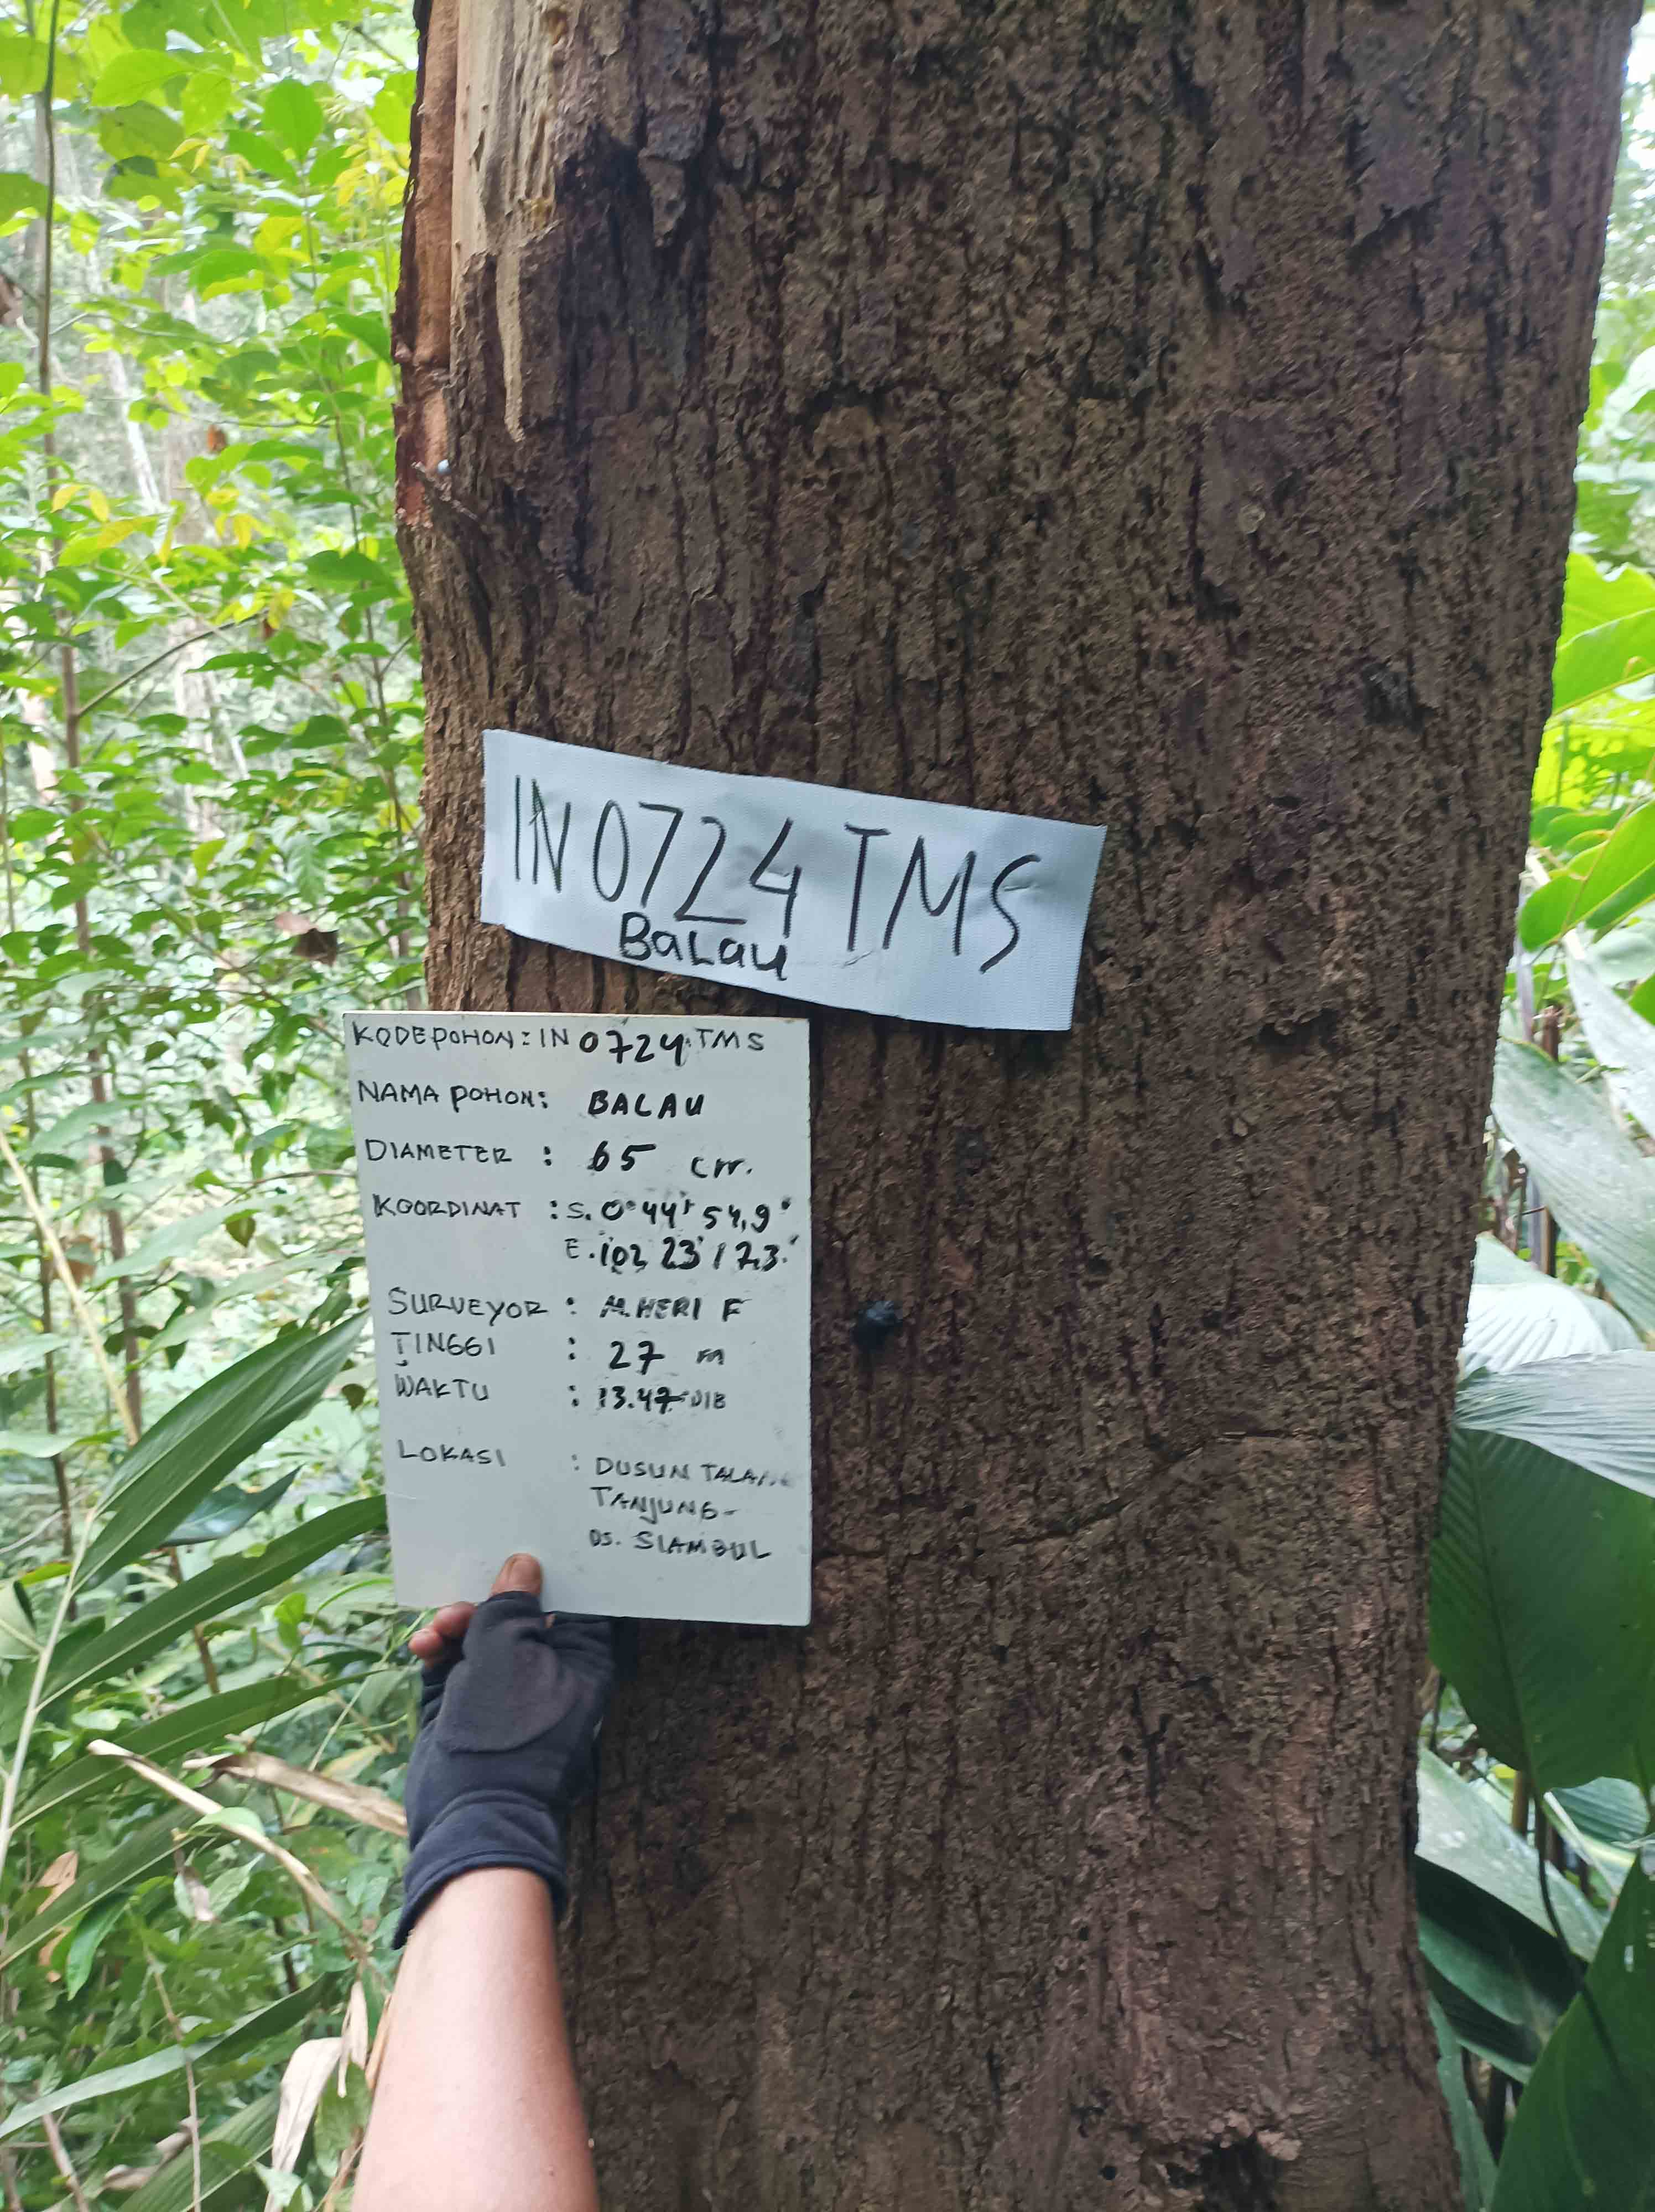 IN 0724 TMS
BaLau
KODE POHON: IN 0724 TMS
NAMA POHON: BALAU
DIAMETER : 65 cm.
KOORDINAT : S. 0° 44' 54,9"
E. 102 23' 17,3"
SURVEYOR : M. HERI F
TINGGI : 27 m
WAKTU : 13.47 WIB
LOKASI : DUSUN TALANG
TANJUNG -
DS. SIAMBUL